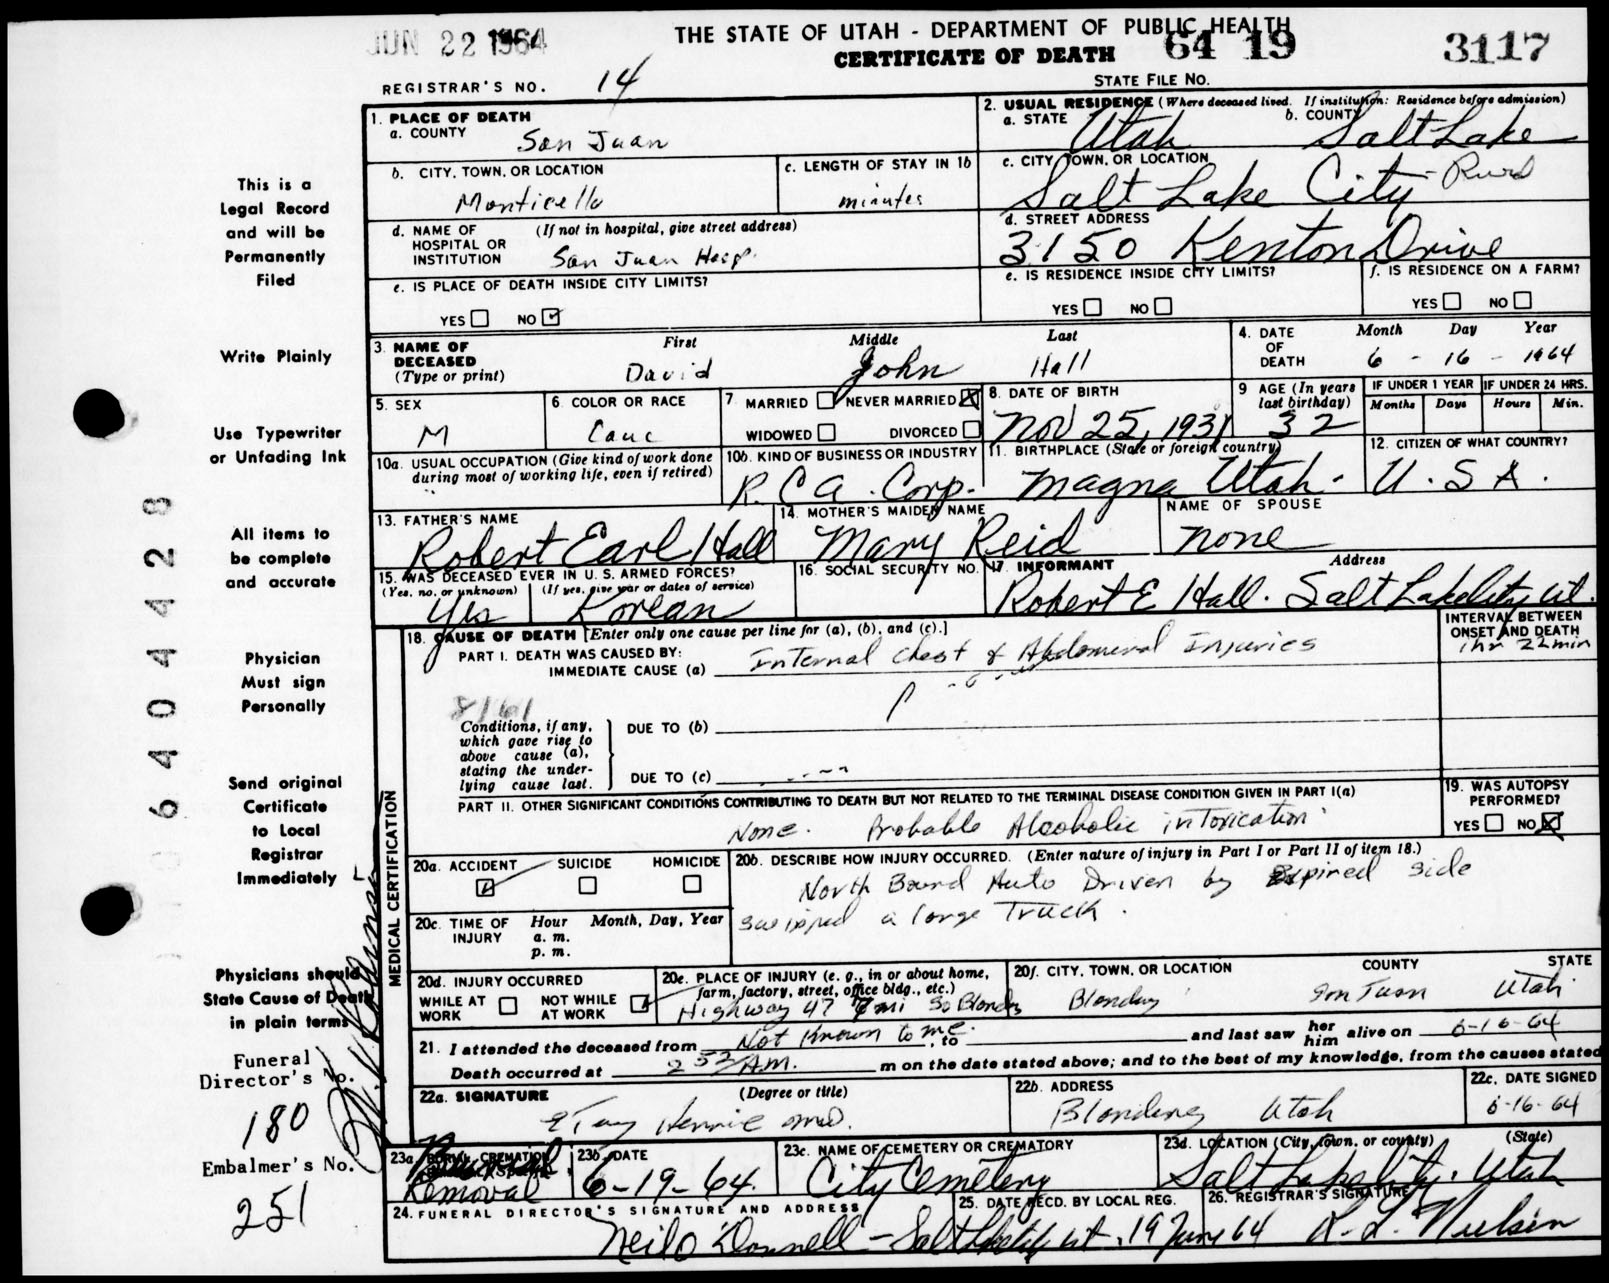 JUN 22 1964
THE STATE OF UTAH - DEPARTMENT OF PUBLIC HEALTH
CERTIFICATE OF DEATH
64 19
3117
REGISTRAR'S NO. 14
STATE FILE NO.
This is a
Legal Record
and will be
Permanently
Filed
Write Plainly
Use Typewriter
or Unfading Ink
All items to
be complete
and accurate
Physician
Must sign
Personally
Send original
Certificate
to Local
Registrar
Immediately
Physicians should
State Cause of Death
in plain terms
Funeral
Director's No.
180
Embalmer's No.
251
6404428
1. PLACE OF DEATH
a. COUNTY
San Juan
b. CITY, TOWN, OR LOCATION
Monticello
c. LENGTH OF STAY IN 1b
minutes
d. NAME OF HOSPITAL OR INSTITUTION (If not in hospital, give street address)
San Juan Hosp.
e. IS PLACE OF DEATH INSIDE CITY LIMITS?
YES NO
2. USUAL RESIDENCE (Where deceased lived. If institution: Residence before admission)
a. STATE
Utah
b. COUNTY
Salt Lake
c. CITY, TOWN, OR LOCATION
Salt Lake City
d. STREET ADDRESS
3150 Kenton Drive
e. IS RESIDENCE INSIDE CITY LIMITS?
YES NO
f. IS RESIDENCE ON A FARM?
YES NO
3. NAME OF DECEASED (Type or print)
First Middle Last
David John Hall
4. DATE OF DEATH
Month Day Year
6 - 16 - 1964
5. SEX
M
6. COLOR OR RACE
Cauc
7. MARRIED NEVER MARRIED
WIDOWED DIVORCED
8. DATE OF BIRTH
Nov 25, 1931
9 AGE (In years last birthday)
32
IF UNDER 1 YEAR
Months Days
IF UNDER 24 HRS.
Hours Min.
10a. USUAL OCCUPATION (Give kind of work done during most of working life, even if retired)
10b. KIND OF BUSINESS OR INDUSTRY
R.C.A. Corp.
11. BIRTHPLACE (State or foreign country)
Magna Utah.
12. CITIZEN OF WHAT COUNTRY?
U.S.A.
13. FATHER'S NAME
Robert Earl Hall
14. MOTHER'S MAIDEN NAME
Mary Reid
NAME OF SPOUSE
None
15. WAS DECEASED EVER IN U. S. ARMED FORCES?
(Yes, no, or unknown) (If yes, give war or dates of service)
Yes Korean
16. SOCIAL SECURITY NO.
17. INFORMANT Address
Robert E Hall. Salt Lake City Ut.
MEDICAL CERTIFICATION
18. CAUSE OF DEATH [Enter only one cause per line for (a), (b), and (c).]
INTERVAL BETWEEN ONSET AND DEATH
PART I. DEATH WAS CAUSED BY:
IMMEDIATE CAUSE (a) Internal Chest & Abdomenal Injuries
1hr 22min
Conditions, if any, which gave rise to above cause (a), stating the underlying cause last.
DUE TO (b)
DUE TO (c)
PART II. OTHER SIGNIFICANT CONDITIONS CONTRIBUTING TO DEATH BUT NOT RELATED TO THE TERMINAL DISEASE CONDITION GIVEN IN PART I(a)
None. Probable Alcoholic intoxication
19. WAS AUTOPSY PERFORMED?
YES NO
20a. ACCIDENT SUICIDE HOMICIDE
20b. DESCRIBE HOW INJURY OCCURRED. (Enter nature of injury in Part I or Part II of item 18.)
North Bound Auto Driven by Expired side
swipped a large Truck.
20c. TIME OF INJURY
Hour Month, Day, Year
a. m.
p. m.
20d. INJURY OCCURRED
WHILE AT WORK NOT WHILE AT WORK
20e. PLACE OF INJURY (e. g., in or about home, farm, factory, street, office bldg., etc.)
Highway 47 7 mi So Blanding
20f. CITY, TOWN, OR LOCATION COUNTY STATE
Blanding San Juan Utah
21. I attended the deceased from Not Known to me. , to and last saw her him alive on 6-16-64
Death occurred at 2 52 A.M. m on the date stated above; and to the best of my knowledge, from the causes stated
22a. SIGNATURE (Degree or title)
22b. ADDRESS
Blanding Utah
22c. DATE SIGNED
6-16-64
23a. BURIAL, CREMATION
Removal
23b. DATE
6-19-64.
23c. NAME OF CEMETERY OR CREMATORY
City Cemetery
23d. LOCATION (City, town, or county) (State)
Salt Lake City. Utah
24. FUNERAL DIRECTOR'S SIGNATURE AND ADDRESS
Neil O'Donnell - Salt Lake City Ut.
25. DATE RECD. BY LOCAL REG.
19 June 64
26. REGISTRAR'S SIGNATURE
R. L. Nielson